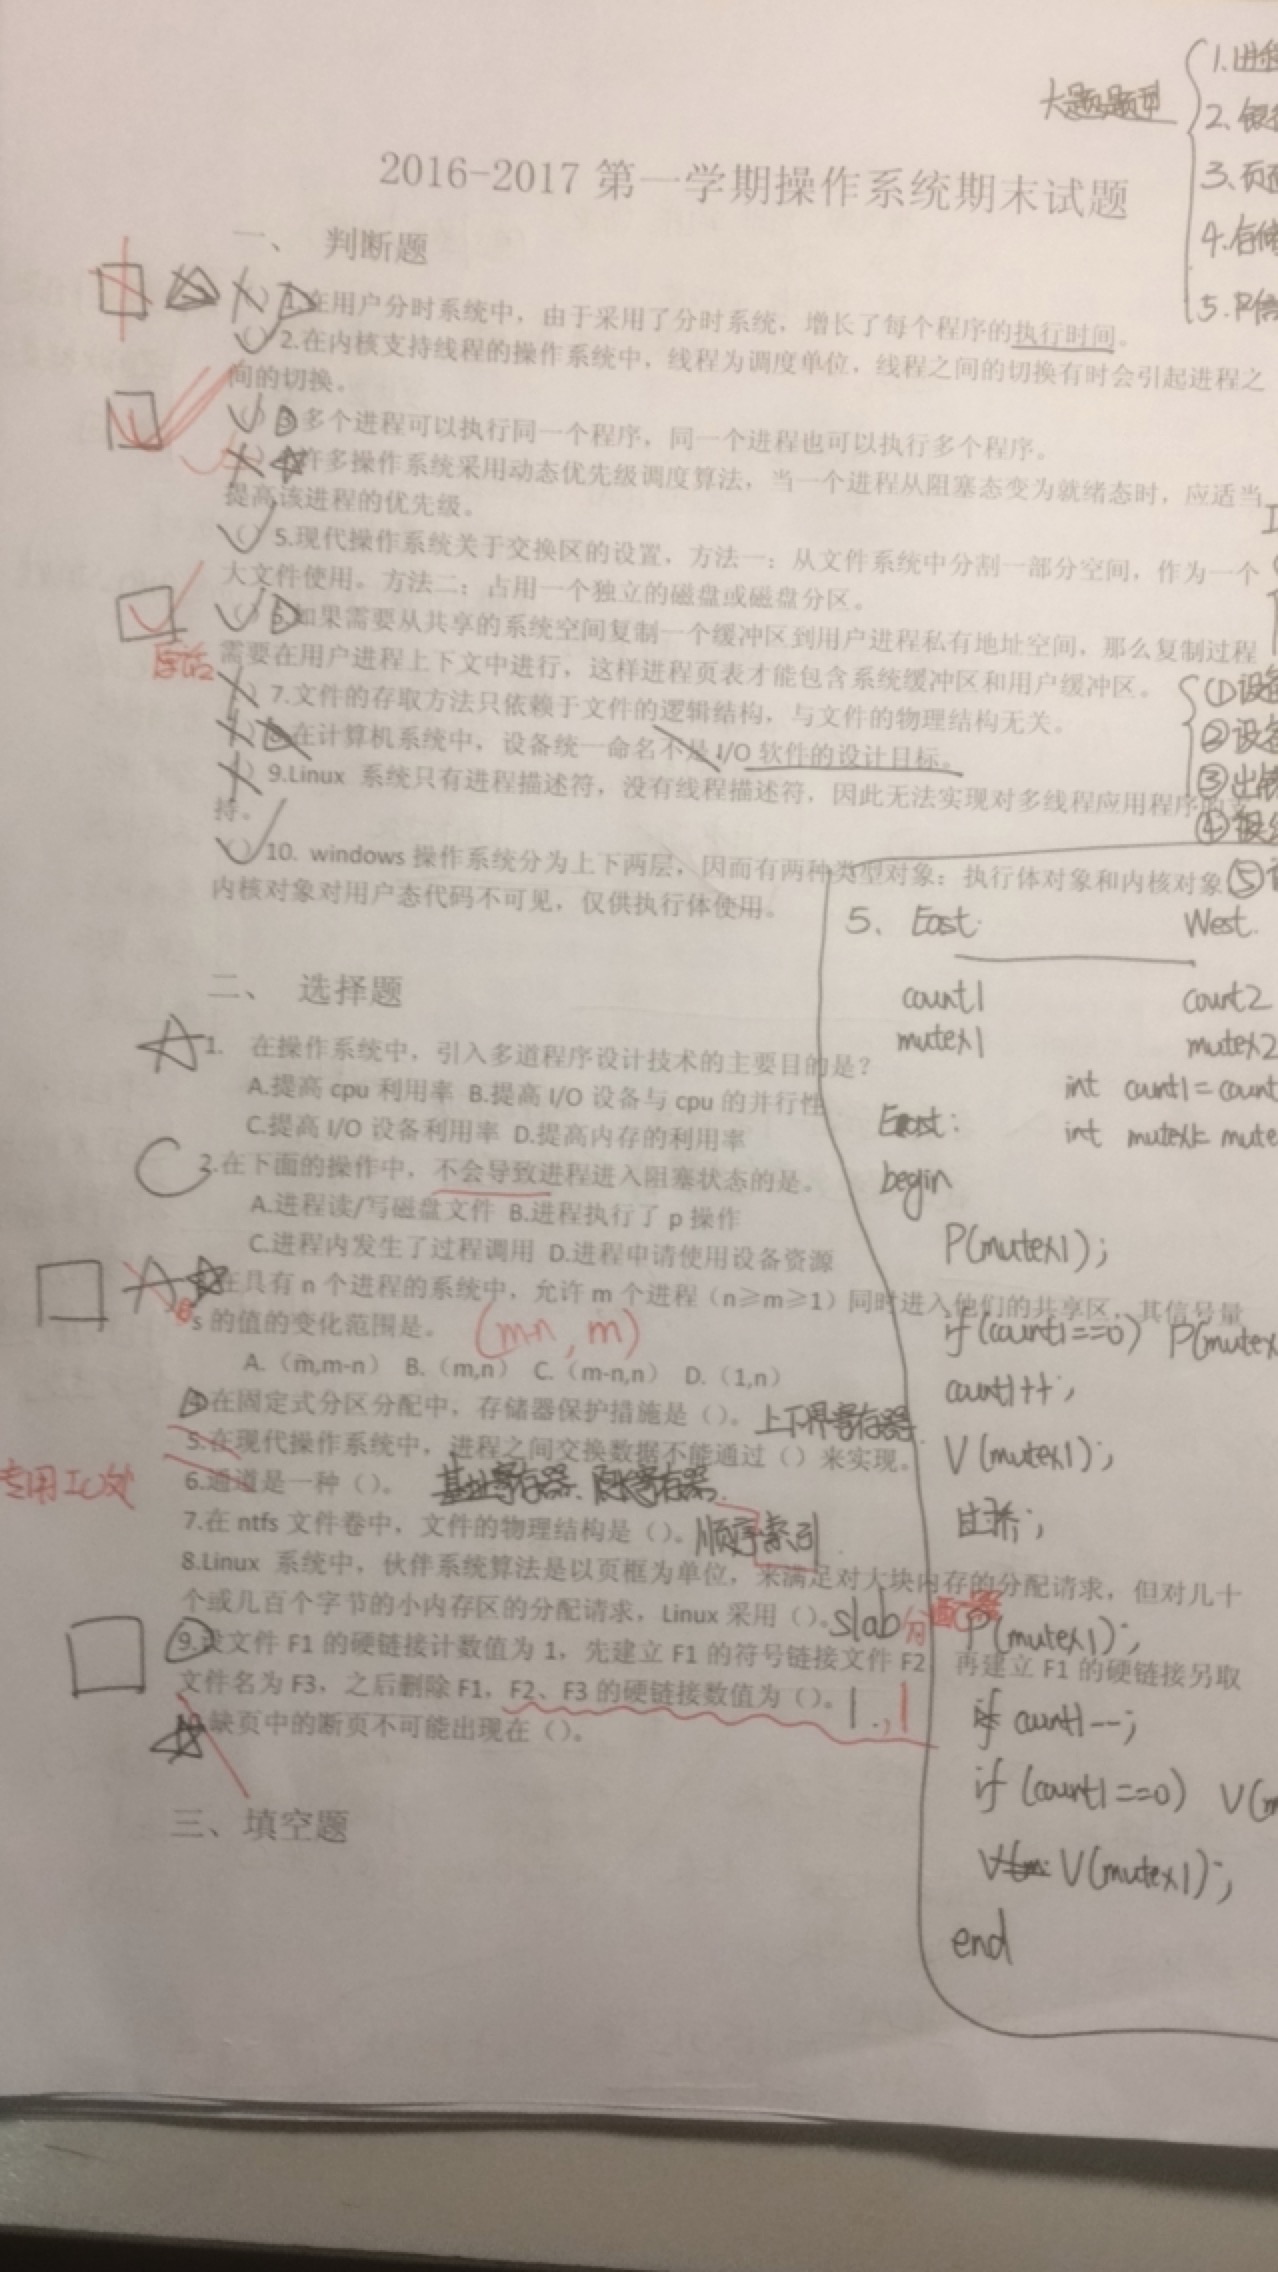 大题题型
1.进程
2.银
3.页面
4.存储
5.P
2016-2017 第一学期操作系统期末试题
一、 判断题
( ) 1.在用户分时系统中，由于采用了分时系统，增长了每个程序的执行时间。
( ) 2.在内核支持线程的操作系统中，线程为调度单位，线程之间的切换有时会引起进程之
间的切换。
( ) 3.多个进程可以执行同一个程序，同一个进程也可以执行多个程序。
( ) 许多操作系统采用动态优先级调度算法，当一个进程从阻塞态变为就绪态时，应适当
提高该进程的优先级。
( ) 5.现代操作系统关于交换区的设置，方法一：从文件系统中分割一部分空间，作为一个
大文件使用。方法二：占用一个独立的磁盘或磁盘分区。
( ) 6.如果需要从共享的系统空间复制一个缓冲区到用户进程私有地址空间，那么复制过程
需要在用户进程上下文中进行，这样进程页表才能包含系统缓冲区和用户缓冲区。
原话
( ) 7.文件的存取方法只依赖于文件的逻辑结构，与文件的物理结构无关。
( ) 在计算机系统中，设备统一命名不是 I/O 软件的设计目标。
( ) 9.Linux 系统只有进程描述符，没有线程描述符，因此无法实现对多线程应用程序的支
持。
( ) 10. windows 操作系统分为上下两层，因而有两种类型对象：执行体对象和内核对象
内核对象对用户态代码不可见，仅供执行体使用。
①设备
②设备
③出错
④
⑤
二、 选择题
A 1. 在操作系统中，引入多道程序设计技术的主要目的是？
A.提高 cpu 利用率 B.提高 I/O 设备与 cpu 的并行性
C.提高 I/O 设备利用率 D.提高内存的利用率
C 2.在下面的操作中，不会导致进程进入阻塞状态的是。
A.进程读/写磁盘文件 B.进程执行了 p 操作
C.进程内发生了过程调用 D.进程申请使用设备资源
A 在具有 n 个进程的系统中，允许 m 个进程（n≥m≥1）同时进入他们的共享区，其信号量
s 的值的变化范围是。 (m-n , m)
A.（m,m-n） B.（m,n） C.（m-n,n） D.（1,n）
4.在固定式分区分配中，存储器保护措施是（）。上下界寄存器
5.在现代操作系统中，进程之间交换数据不能通过（）来实现。
专用IO处
6.通道是一种（）。 基址寄存器、限长寄存器.
7.在 ntfs 文件卷中，文件的物理结构是（）。顺序索引
8.Linux 系统中，伙伴系统算法是以页框为单位，来满足对大块内存的分配请求，但对几十
个或几百个字节的小内存区的分配请求，Linux 采用（）。slab分配器
9.设文件 F1 的硬链接计数值为 1，先建立 F1 的符号链接文件 F2 再建立 F1 的硬链接另取
文件名为 F3，之后删除 F1，F2、F3 的硬链接数值为（）。1.,1
缺页中的断页不可能出现在（）。
三、填空题
5、East. West.
count1 count2
mutex1 mutex2
int count1=count
int mutex1= mute
East:
begin
P(mutex1);
if(count1==0) P(mutex
count1++;
V(mutex1);
过桥;
P(mutex1);
count1--;
if (count1==0) V(m
V(mutex1);
end